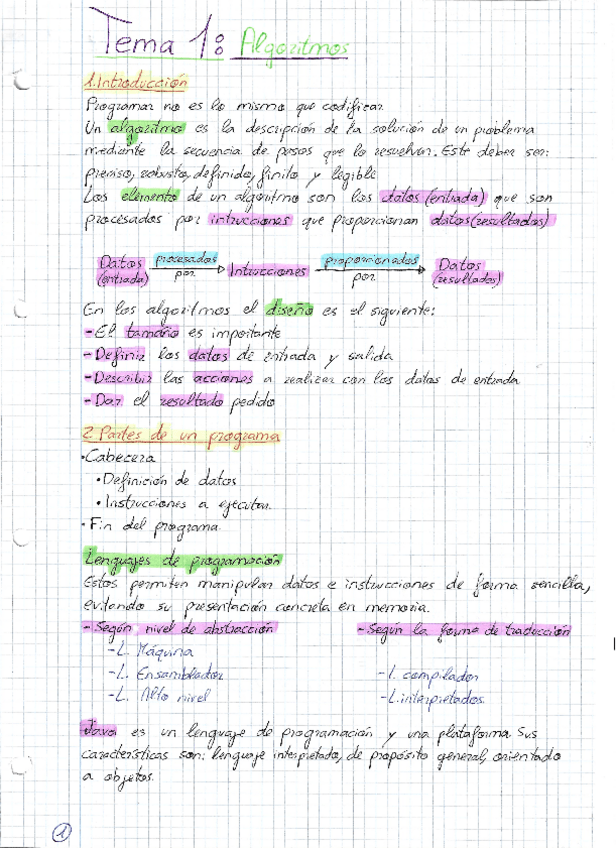 Tema 1: Algoritmos
1. Introducción
Programar no es lo mismo que codificar
Un algoritmo es la descripción de la solución de un problema
mediante la secuencia de pasos que lo resuelven. Este deber ser:
preciso, robusto, definido, finito y legible
Los elemento de un algoritmo son los datos (entrada) que son
procesados por intrucciones que proporcionan datos (resultados)
Datos (entrada) procesados por Intrucciones proporcionados por Datos (resultados)
En los algoritmos el diseño es el siguiente:
- El tamaño es importante
- Definir los datos de entrada y salida
- Describir las acciones a realizar con los datos de entrada
- Dar el resultado pedido
2 Partes de un programa
• Cabecera
• Definición de datos
• Instrucciones a ejecutar.
• Fin del programa
Lenguajes de programación
Estos permiten manipular datos e instrucciones de forma sencilla,
evitando su presentación concreta en memoria.
- Según nivel de abstracción - Según la forma de traducción
- L. Máquina
- L. Ensamblador - l. compilador
- L. Alto nivel - L. interpretados.
Java es un lenguaje de programación y una plataforma sus
características son: lenguaje interpretado, de propósito general, orientado
a objetos.
1